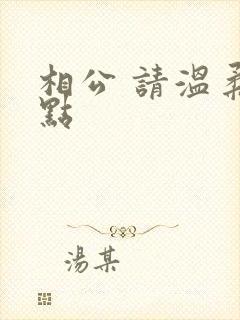 相公 請溫柔
點
湯某